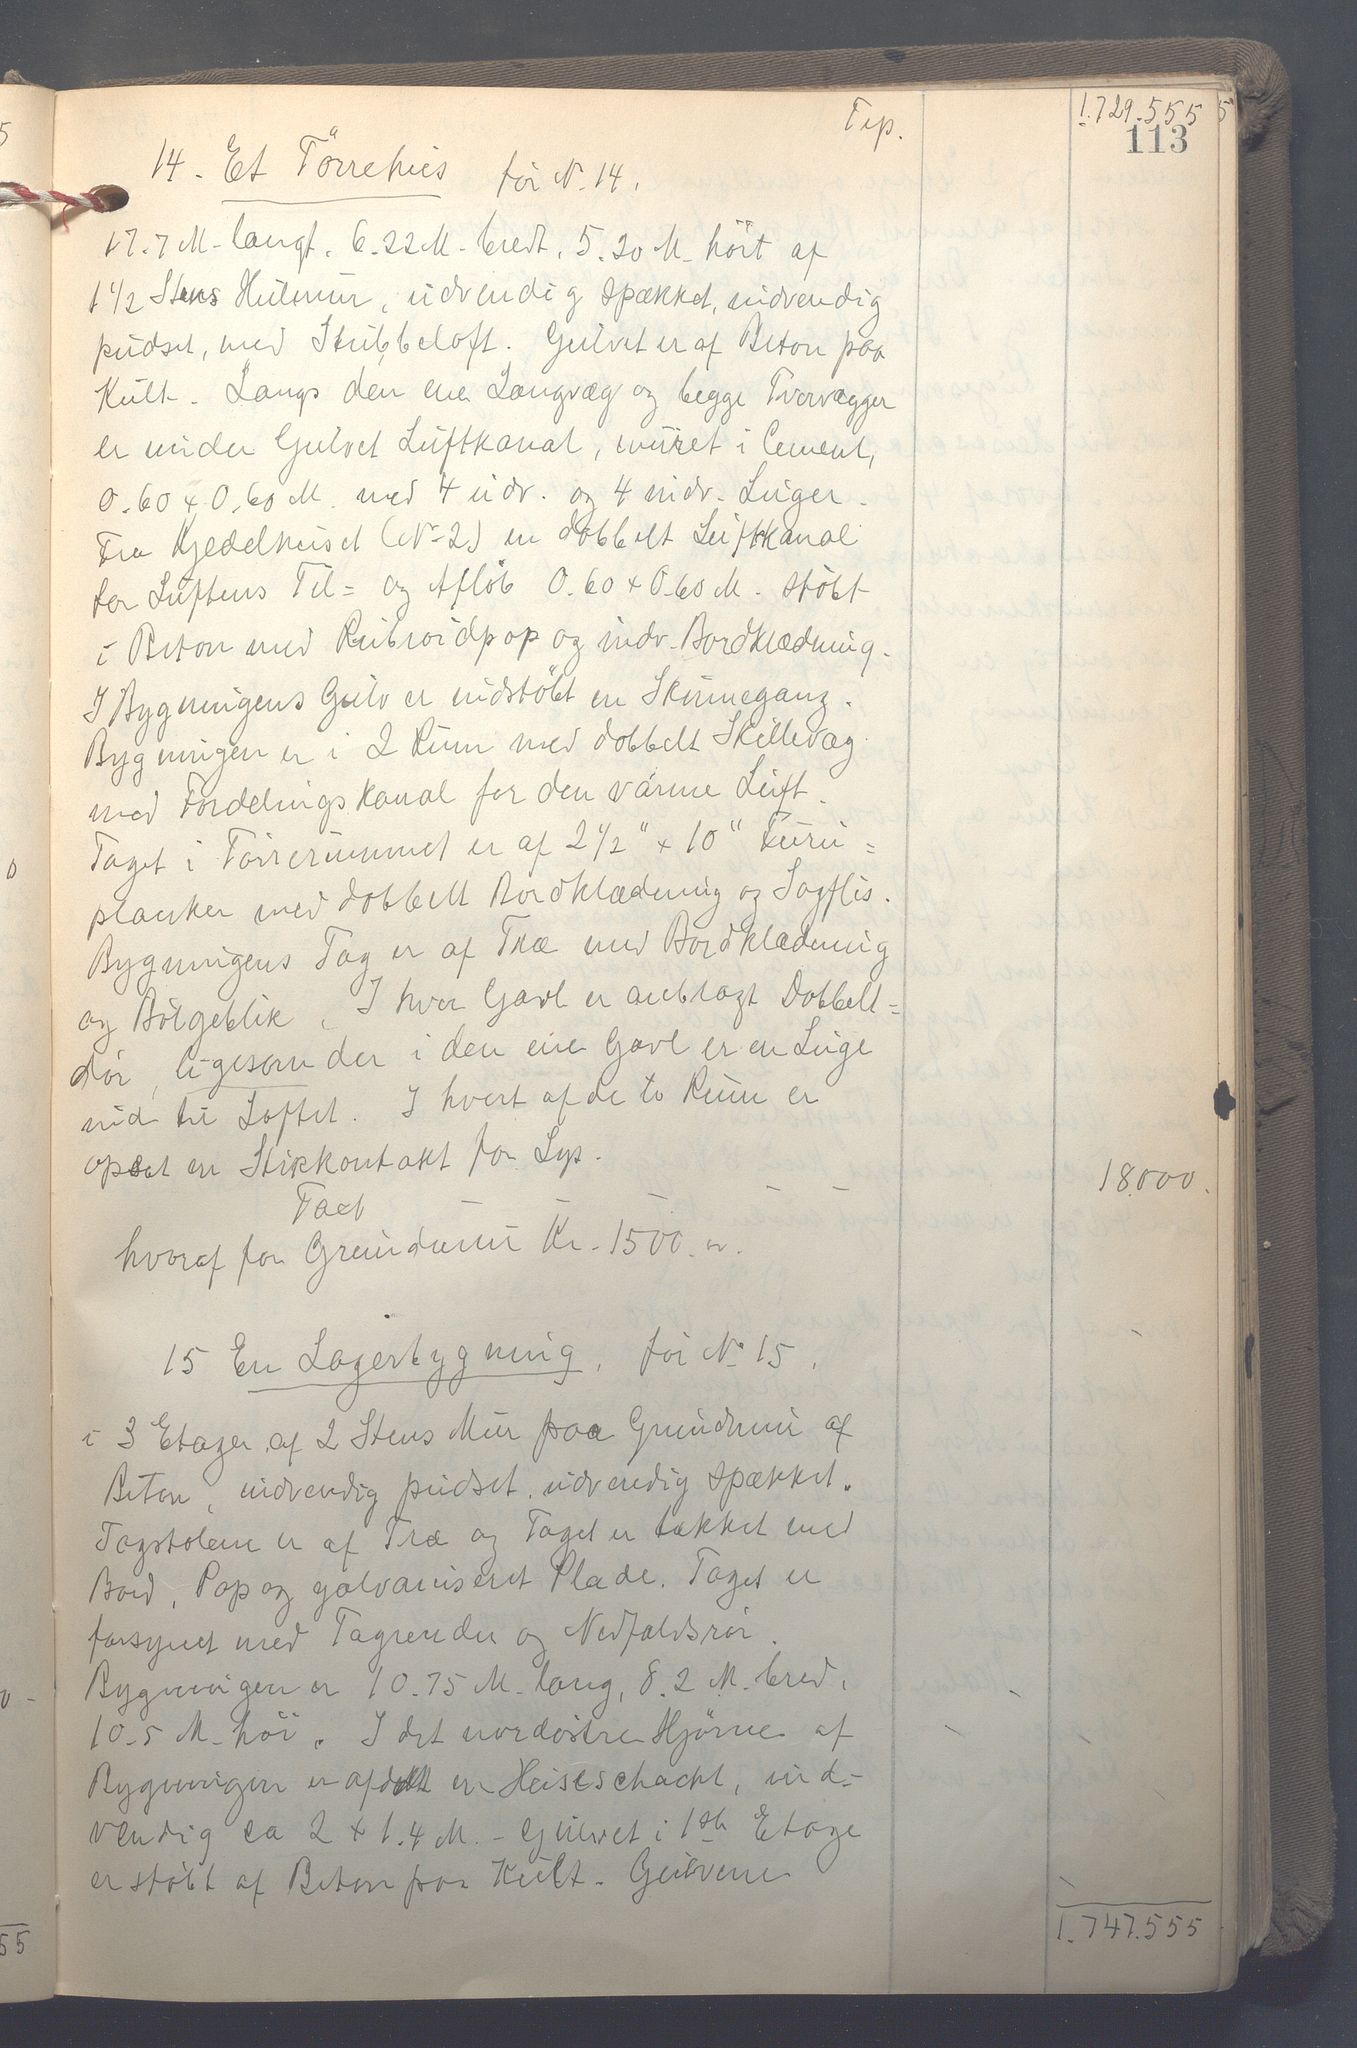 Trp. 1.729.555
113
14. Et Törrehus för N. 14.
17.7 M. langt. 6.22 M. bredt. 5.20 M. höit af
1 1/2 Stens Hulmur, udvendig spækket, indvendig
pudset, med Stubbeloft. Gulvet er af Beton paa
Kult. Langs den ene Langvæg og begge Tvervægger
er under Gulvet Luftkanal, muret i Cement,
0.60 x 0.60 M. med 4 udv. og 4 indv. Luger.
Fra Kjedelhuset (No 2) en dobbelt Luftkanal
for Luftens Til= og Aflöb 0.60 x 0.60 M. stöbt
i Beton med Ruberoidpap og indv. Bordklædning.
I Bygningens Gulv er indstöbt en Skinnegang.
Bygningen er i 2 Rum med dobbelt Skillevæg
med Fordelingskanal for den varme Luft.
Taget i Törrerummet er af 2 1/2" x 10" Furu=
planker med dobbelt Bordklædning og Sagflis.
Bygningens Tag er af Træ med Bordklædning
og Bölgeblik. I hver Gavl er anbragt Dobbelt=
dör, ligesom der i den ene Gavl er en Luge
ind til Loftet. I hvert af de to Rum er
opsat en Stikkontakt for Lys.
Taxt - - - - - 18.000.
hvoraf for Grundmur Kr. 1500.
15 En Lagerbygning, för No 15.
i 3 Etager af 2 Stens Mur paa Grundmur af
Beton, indvendig pudset, udvendig spækket.
Tagstolene er af Træ og Taget er tækket med
Bord, Pap og galvaniseret Plade. Taget er
forsynet med Tagrender og Nedfaldsrör.
Bygningen er 10.75 M. lang, 8.2 M. bred.
10.5 M. höi. I det nordöstre Hjörne af
Bygningen er afdelt en Heiseschacht, ind-
vendig ca 2 x 1.4 M. - Gulvet i 1ste Etage
er stöbt af Beton paa Kult. Gulvene
1.747.555